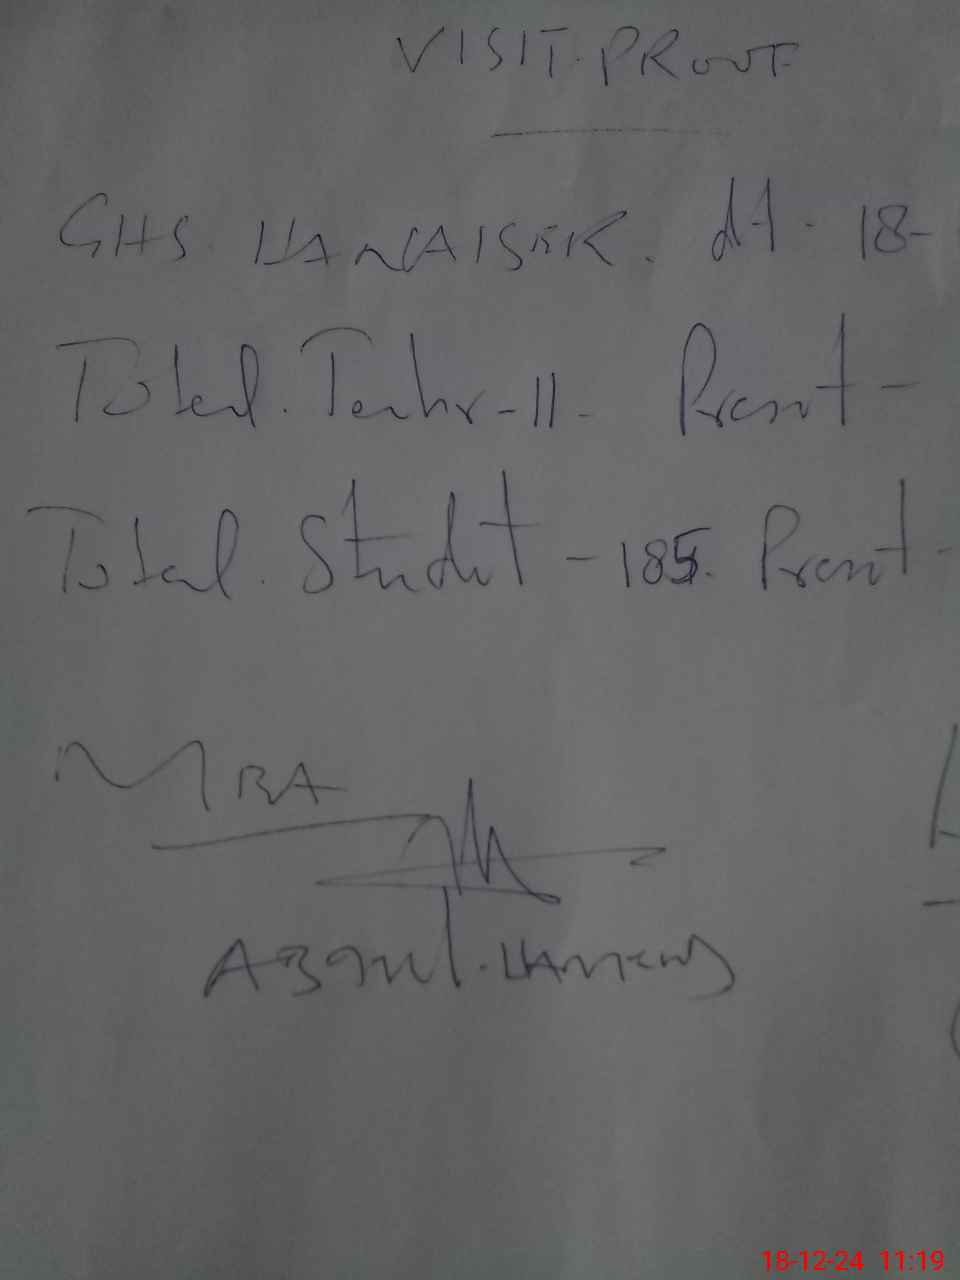 VISIT PROOF
GHS HANAISER. dt. 18-
Total. Teachr-11- Present-
Total. Student - 185. Present-
MRA
18-12-24 11:19